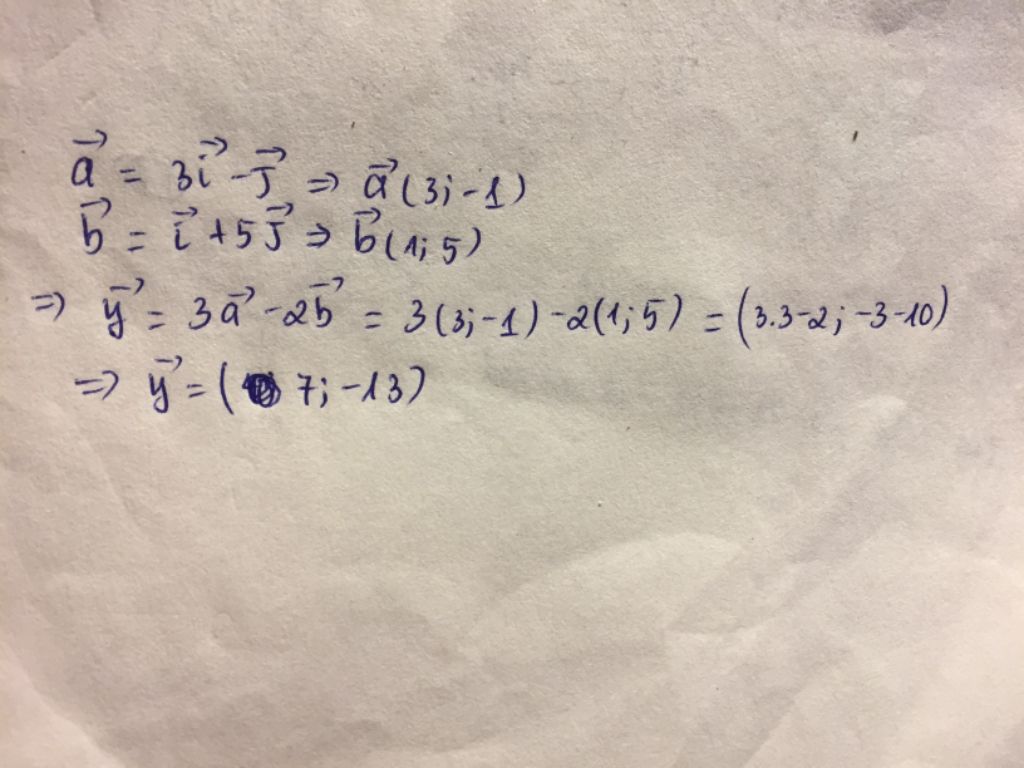 a⃗ = 3i⃗ - j⃗ => a⃗ (3; -1)
b⃗ = i⃗ + 5j⃗ => b⃗ (1; 5)
=> y⃗ = 3a⃗ - 2b⃗ = 3(3; -1) - 2(1; 5) = (3.3-2; -3-10)
=> y⃗ = ( 7; -13)